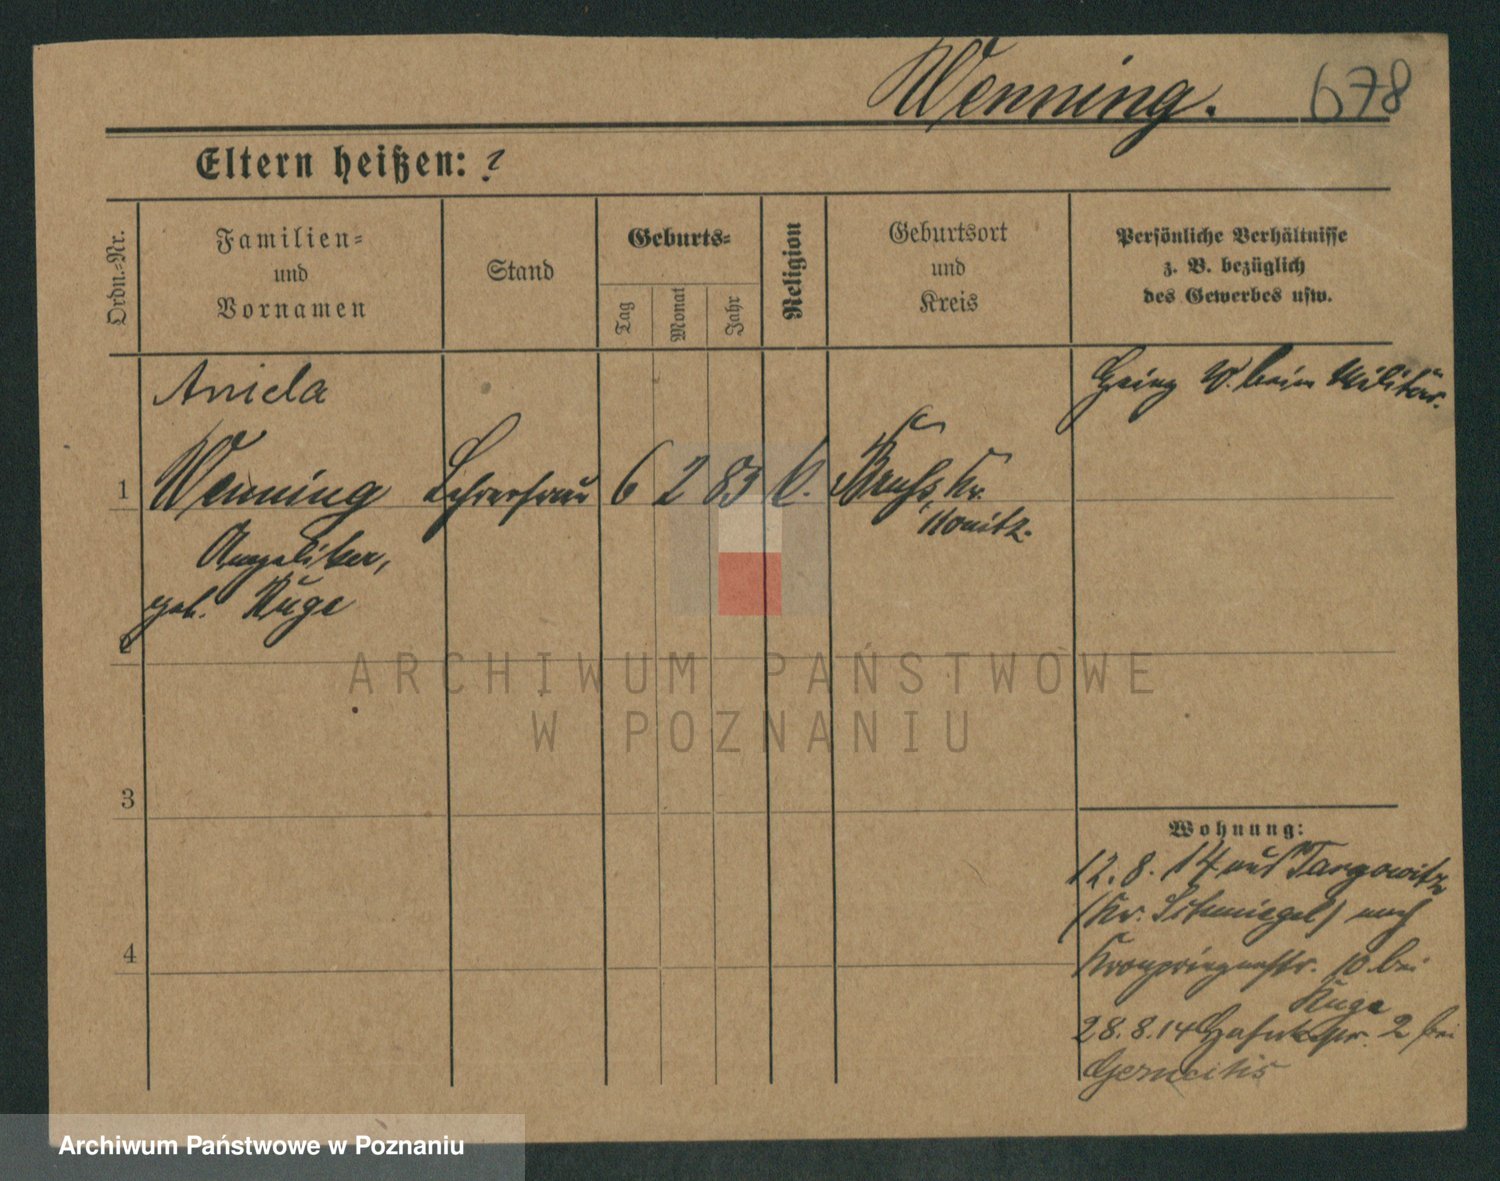 Wenning. 678
Eltern heißen: ?
Ordn.=Nr.
Familien=
und
Vornamen
Stand
Geburts=
Tag
Monat
Jahr
Religion
Geburtsort
und
Kreis
Persönliche Verhältnisse
z. B. bezüglich
des Gewerbes usw.
Aniela
W. beim Militär.
1 Wenning Lehrersfrau 6 2 83 k. Bruß, Kr.
Konitz.
Angelika,
geb. Kuge
2
3
4
Wohnung:
12. 8. 14 aus Targowitz
(Kr. Schmiegel) nach
Kronprinzenstr. 10 bei
Kuge
28. 8. 14 2 bei
ARCHIWUM PAŃSTWOWE
W POZNANIU
Archiwum Państwowe w Poznaniu